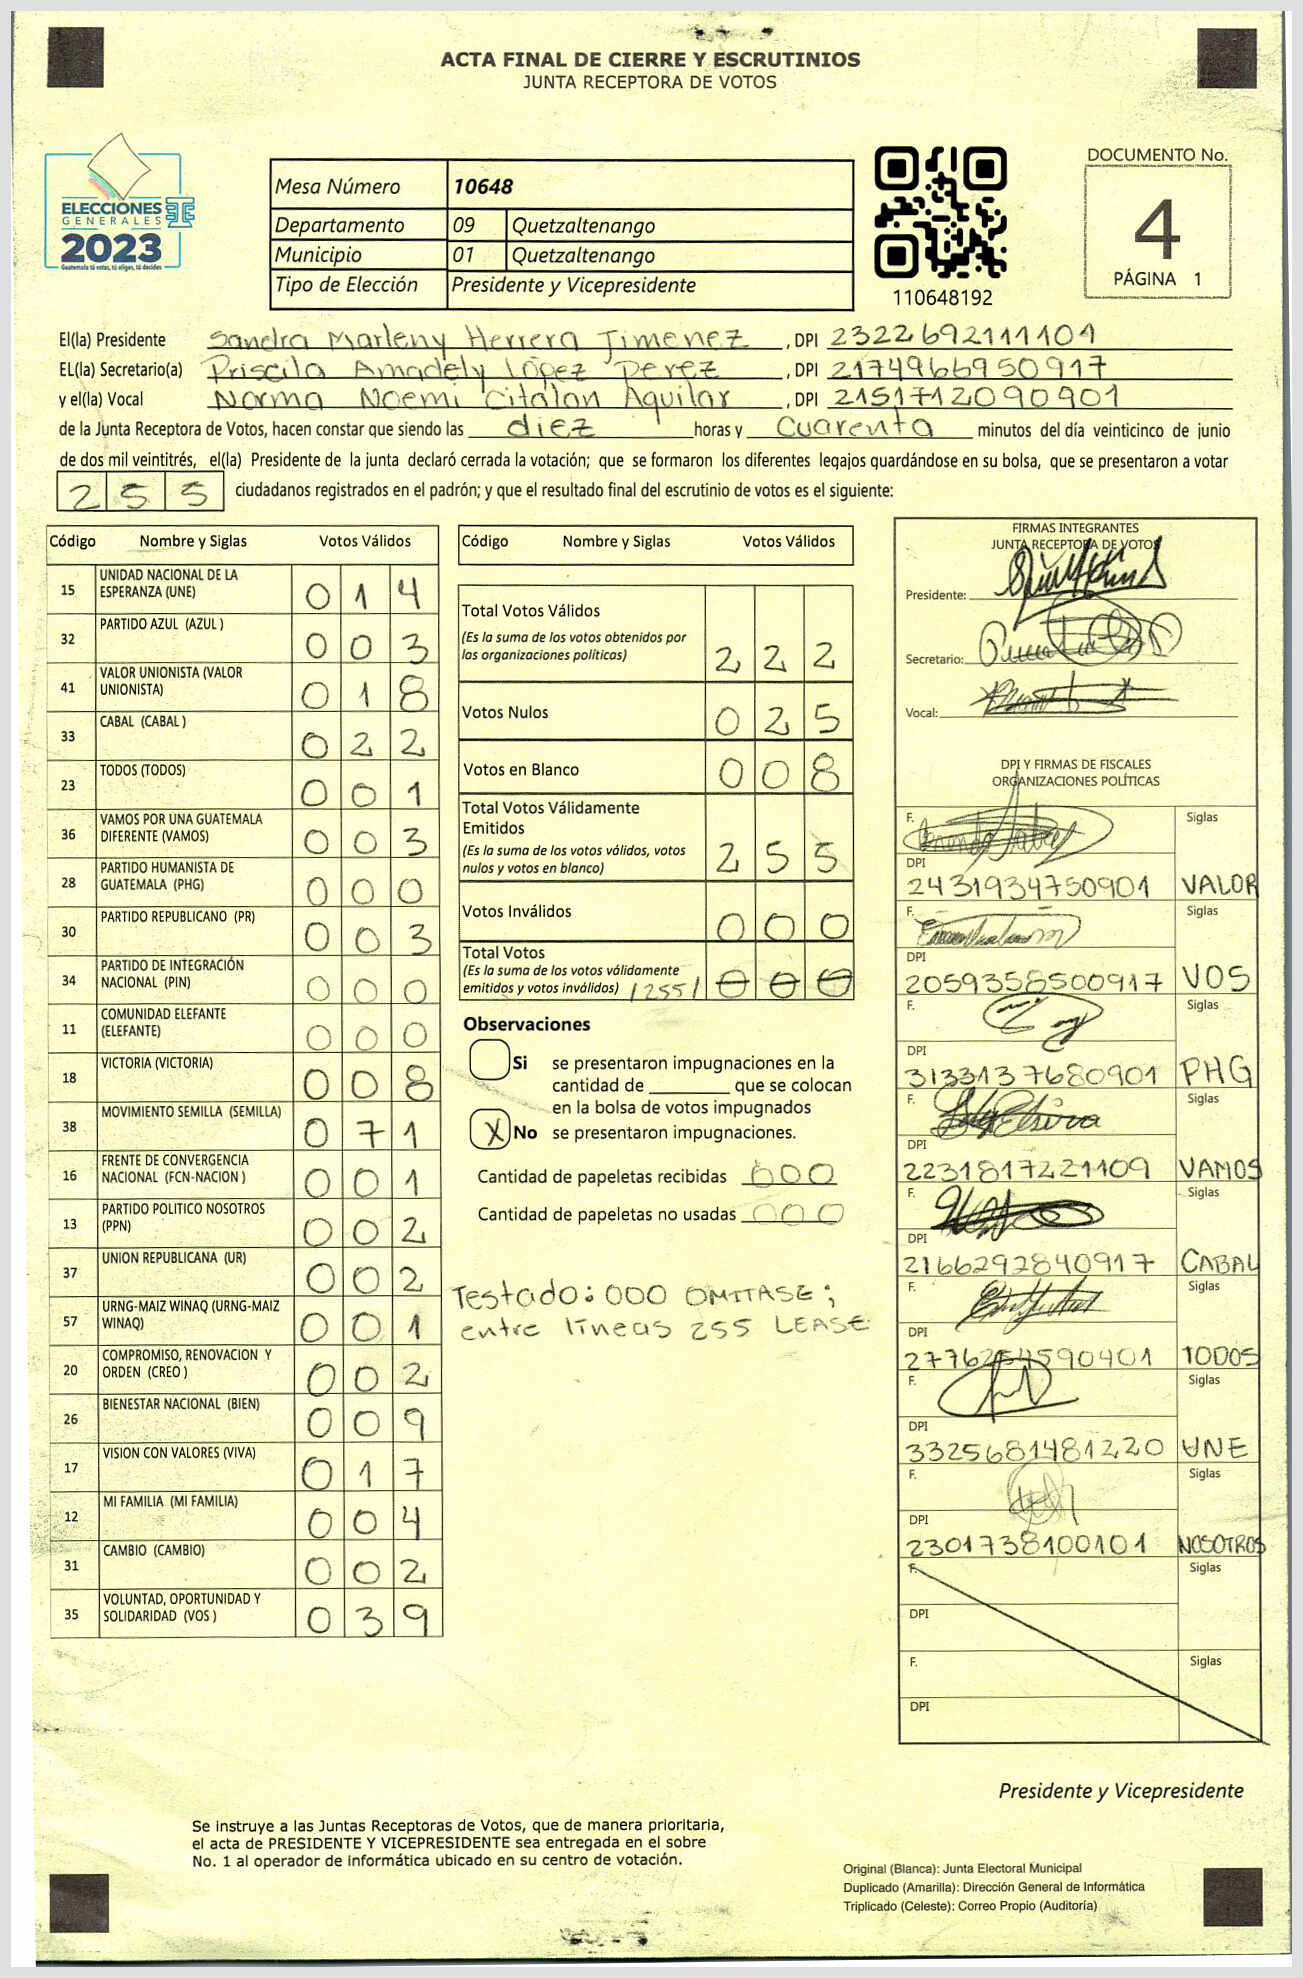 ACTA FINAL DE CIERRE Y ESCRUTINIOS
JUNTA RECEPTORA DE VOTOS
ELECCIONES
GENERALES
2023
Guatemala tú votas, tú eliges, tú decides
Mesa Número 10648
Departamento 09 Quetzaltenango
Municipio 01 Quetzaltenango
Tipo de Elección Presidente y Vicepresidente
110648192
DOCUMENTO No.
4
PÁGINA 1
El(la) Presidente Sandra Marleny Herrera Jimenez, DPI 2322692111101
EL(la) Secretario(a) Priscila Amadely López Perez, DPI 2174966950917
y el(la) Vocal Norma Noemi Citalan Aguilar, DPI 2151712090901
de la Junta Receptora de Votos, hacen constar que siendo las diez horas y cuarenta minutos del día veinticinco de junio
de dos mil veintitrés, el(la) Presidente de la junta declaró cerrada la votación; que se formaron los diferentes legajos guardándose en su bolsa, que se presentaron a votar
255 ciudadanos registrados en el padrón; y que el resultado final del escrutinio de votos es el siguiente:
Código Nombre y Siglas Votos Válidos
15 UNIDAD NACIONAL DE LA ESPERANZA (UNE) 014
32 PARTIDO AZUL (AZUL ) 003
41 VALOR UNIONISTA (VALOR UNIONISTA) 018
33 CABAL (CABAL ) 022
23 TODOS (TODOS) 001
36 VAMOS POR UNA GUATEMALA DIFERENTE (VAMOS) 003
28 PARTIDO HUMANISTA DE GUATEMALA (PHG) 000
30 PARTIDO REPUBLICANO (PR) 003
34 PARTIDO DE INTEGRACIÓN NACIONAL (PIN) 000
11 COMUNIDAD ELEFANTE (ELEFANTE) 000
18 VICTORIA (VICTORIA) 008
38 MOVIMIENTO SEMILLA (SEMILLA) 071
16 FRENTE DE CONVERGENCIA NACIONAL (FCN-NACION ) 001
13 PARTIDO POLITICO NOSOTROS (PPN) 002
37 UNION REPUBLICANA (UR) 002
57 URNG-MAIZ WINAQ (URNG-MAIZ WINAQ) 001
20 COMPROMISO, RENOVACION Y ORDEN (CREO ) 002
26 BIENESTAR NACIONAL (BIEN) 009
17 VISION CON VALORES (VIVA) 017
12 MI FAMILIA (MI FAMILIA) 004
31 CAMBIO (CAMBIO) 002
35 VOLUNTAD, OPORTUNIDAD Y SOLIDARIDAD (VOS ) 039
Código Nombre y Siglas Votos Válidos
Total Votos Válidos 222
(Es la suma de los votos obtenidos por
las organizaciones políticas)
Votos Nulos 025
Votos en Blanco 008
Total Votos Válidamente
Emitidos 255
(Es la suma de los votos válidos, votos
nulos y votos en blanco)
Votos Inválidos 000
Total Votos
(Es la suma de los votos válidamente
emitidos y votos inválidos) /255/ 000
Observaciones
Si se presentaron impugnaciones en la
cantidad de ________ que se colocan
en la bolsa de votos impugnados
X No se presentaron impugnaciones.
Cantidad de papeletas recibidas 000
Cantidad de papeletas no usadas 000
Testado: 000 OMITASE;
entre líneas 255 LEASE
FIRMAS INTEGRANTES
JUNTA RECEPTORA DE VOTOS
Presidente:
Secretario:
Vocal:
DPI Y FIRMAS DE FISCALES
ORGANIZACIONES POLÍTICAS
F. Siglas
DPI
2431934750901 VALOR
F. Siglas
DPI
2059358500917 VOS
F. Siglas
DPI
3133137680901 PHG
F. Siglas
DPI
2231817221109 VAMOS
F. Siglas
DPI
2166292840917 CABAL
F. Siglas
DPI
2776254590401 TODOS
F. Siglas
DPI
3325681481220 UNE
F. Siglas
DPI
2301738100101 NOSOTROS
F. Siglas
DPI
F. Siglas
DPI
Presidente y Vicepresidente
Se instruye a las Juntas Receptoras de Votos, que de manera prioritaria,
el acta de PRESIDENTE Y VICEPRESIDENTE sea entregada en el sobre
No. 1 al operador de informática ubicado en su centro de votación.
Original (Blanca): Junta Electoral Municipal
Duplicado (Amarilla): Dirección General de Informática
Triplicado (Celeste): Correo Propio (Auditoría)